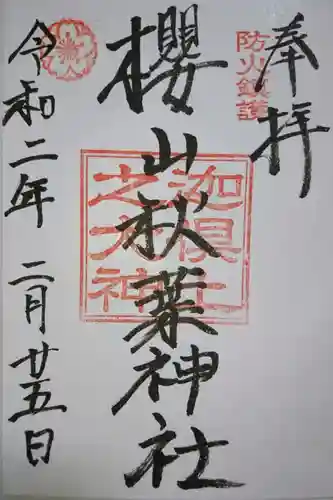 奉拝
防火鎮護
櫻山秋葉神社
迦倶土之大神
令和二年二月廿五日